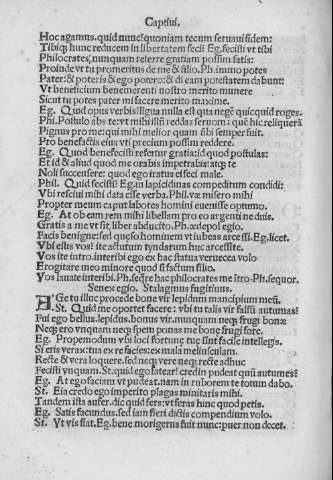 Captiui.
Hoc agamus. quid nunc? quoniam tecum seruaui fidem:
Tibiq; hunc reducem in libertatem feci? Eg. fecisti vt tibi
Philocrates, nunquam referre gratiam possim satis:
Proinde vt tu promeritus de me & filio. Ph. immo potes
Pater: & poteris & ego potero: & di eam potestatem dabunt:
Vt beneficium benemerenti nostro merito munere
Sicut tu potes pater mi facere merito maxime.
Eg. Quid opus verbis? ligua nulla est qua negē quicquid roges.
Phi. Postulo abs te: vt mihi illū reddas seruom: quē hic reliquerā
Pignus pro me: qui mihi melior quam sibi semper fuit.
Pro benefactis eius vti precium possim reddere.
Eg. Quod benefecisti refertur gratia: id quod postulas:
Et id & aliud quod me orabis impetrabis: atq; te
Noli succensere: quod ego iratus ei feci male.
Phil. Quid fecisti? Eg. in lapicidinas compeditum condidi:
Vbi resciui mihi data esse verba. Phil. væ misero mihi
Propter meum caput labores homini euenisse optumo.
Eg. At ob eam rem mihi libellam pro eo argenti ne duis.
Gratis a me vt sit liber abducito. Ph. ædepol egio.
Facis benigne: sed queso hominem vt iubeas arcessi. Eg. licet.
Vbi estis vos? ite actutum tyndarum huc arcessite.
Vos ite intro. interibi ego ex hac statua verucea volo
Erogitare meo minore quod si factum filio.
Vos lauate interibi. Ph. seqre hac philocrates me itro. Ph. sequor.
Senex egio. Stalagmus fugitiuus.
AGe tu illuc procede bone vir lepidum mancipium meū.
St. Quid me oportet facere: vbi tu talis vir falsū autumas?
Fui ego bellus. lepidus. bonus vir. nunquam neq; frugi bonæ
Neq; ero vnqnam neq; spem ponas me bone frugi fore.
Eg. Propemodum vbi loci fortunę tuę sint facile intellegis.
Si eris verax: tua ex re facies: ex mala meliusculam.
Recte & vera loquere. sed neq; vere neq; recte adhuc
Fecisti vnquam. St. quid ego fatear? credin pudeat quū autumes?
Eg. At ego faciam vt pudeat. nam in ruborem te totum dabo.
St. Eia credo ego imperito plagas minitaris mihi.
Tandem ista aufer. dic quid fers: vt feras hinc quod petis.
Eg. Satis facundus. sed iam fieri dictis compendium volo.
St. Vt vis fiat. Eg. bene morigerus fuit nunc: puer non decet.